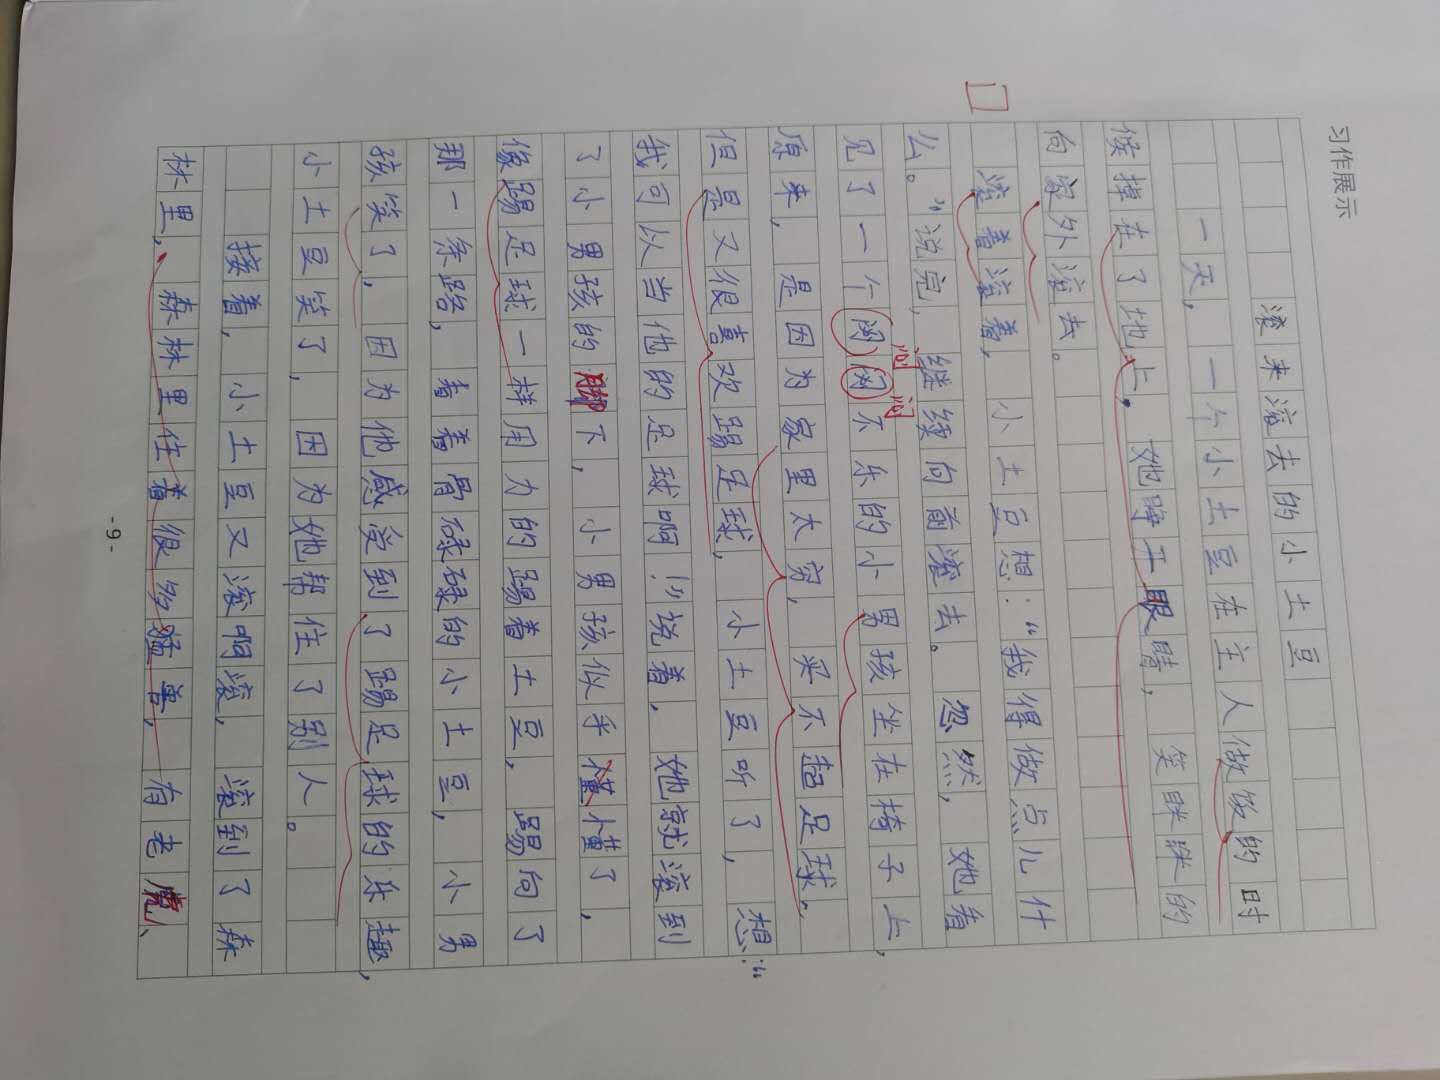 习作展示
滚来滚去的小土豆
一天，一个小土豆在主人做饭的时
候掉在了地上。她睁开眼睛，笑眯眯的
向窗外滚去。
滚着滚着，小土豆想：“我得做点儿什
么。”说完，继续向前滚去。忽然，她看
见了一个闷闷不乐的小男孩坐在椅子上，
闷 闷
原来，是因为家里太穷，买不起足球。
但是又很喜欢踢足球，小土豆听了，想：“
我可以当他的足球啊！”说着，她就滚到
了小男孩的脚下，小男孩似乎懂了，
像踢足球一样用力的踢着土豆，踢向了
那一条路，看着骨碌碌的小土豆，小男
孩笑了，因为他感受到了踢足球的乐趣，
小土豆笑了，因为她帮住了别人。
接着，小土豆又滚啊滚，滚到了森
林里，森林里住着很多猛兽，有老虎、
-9-